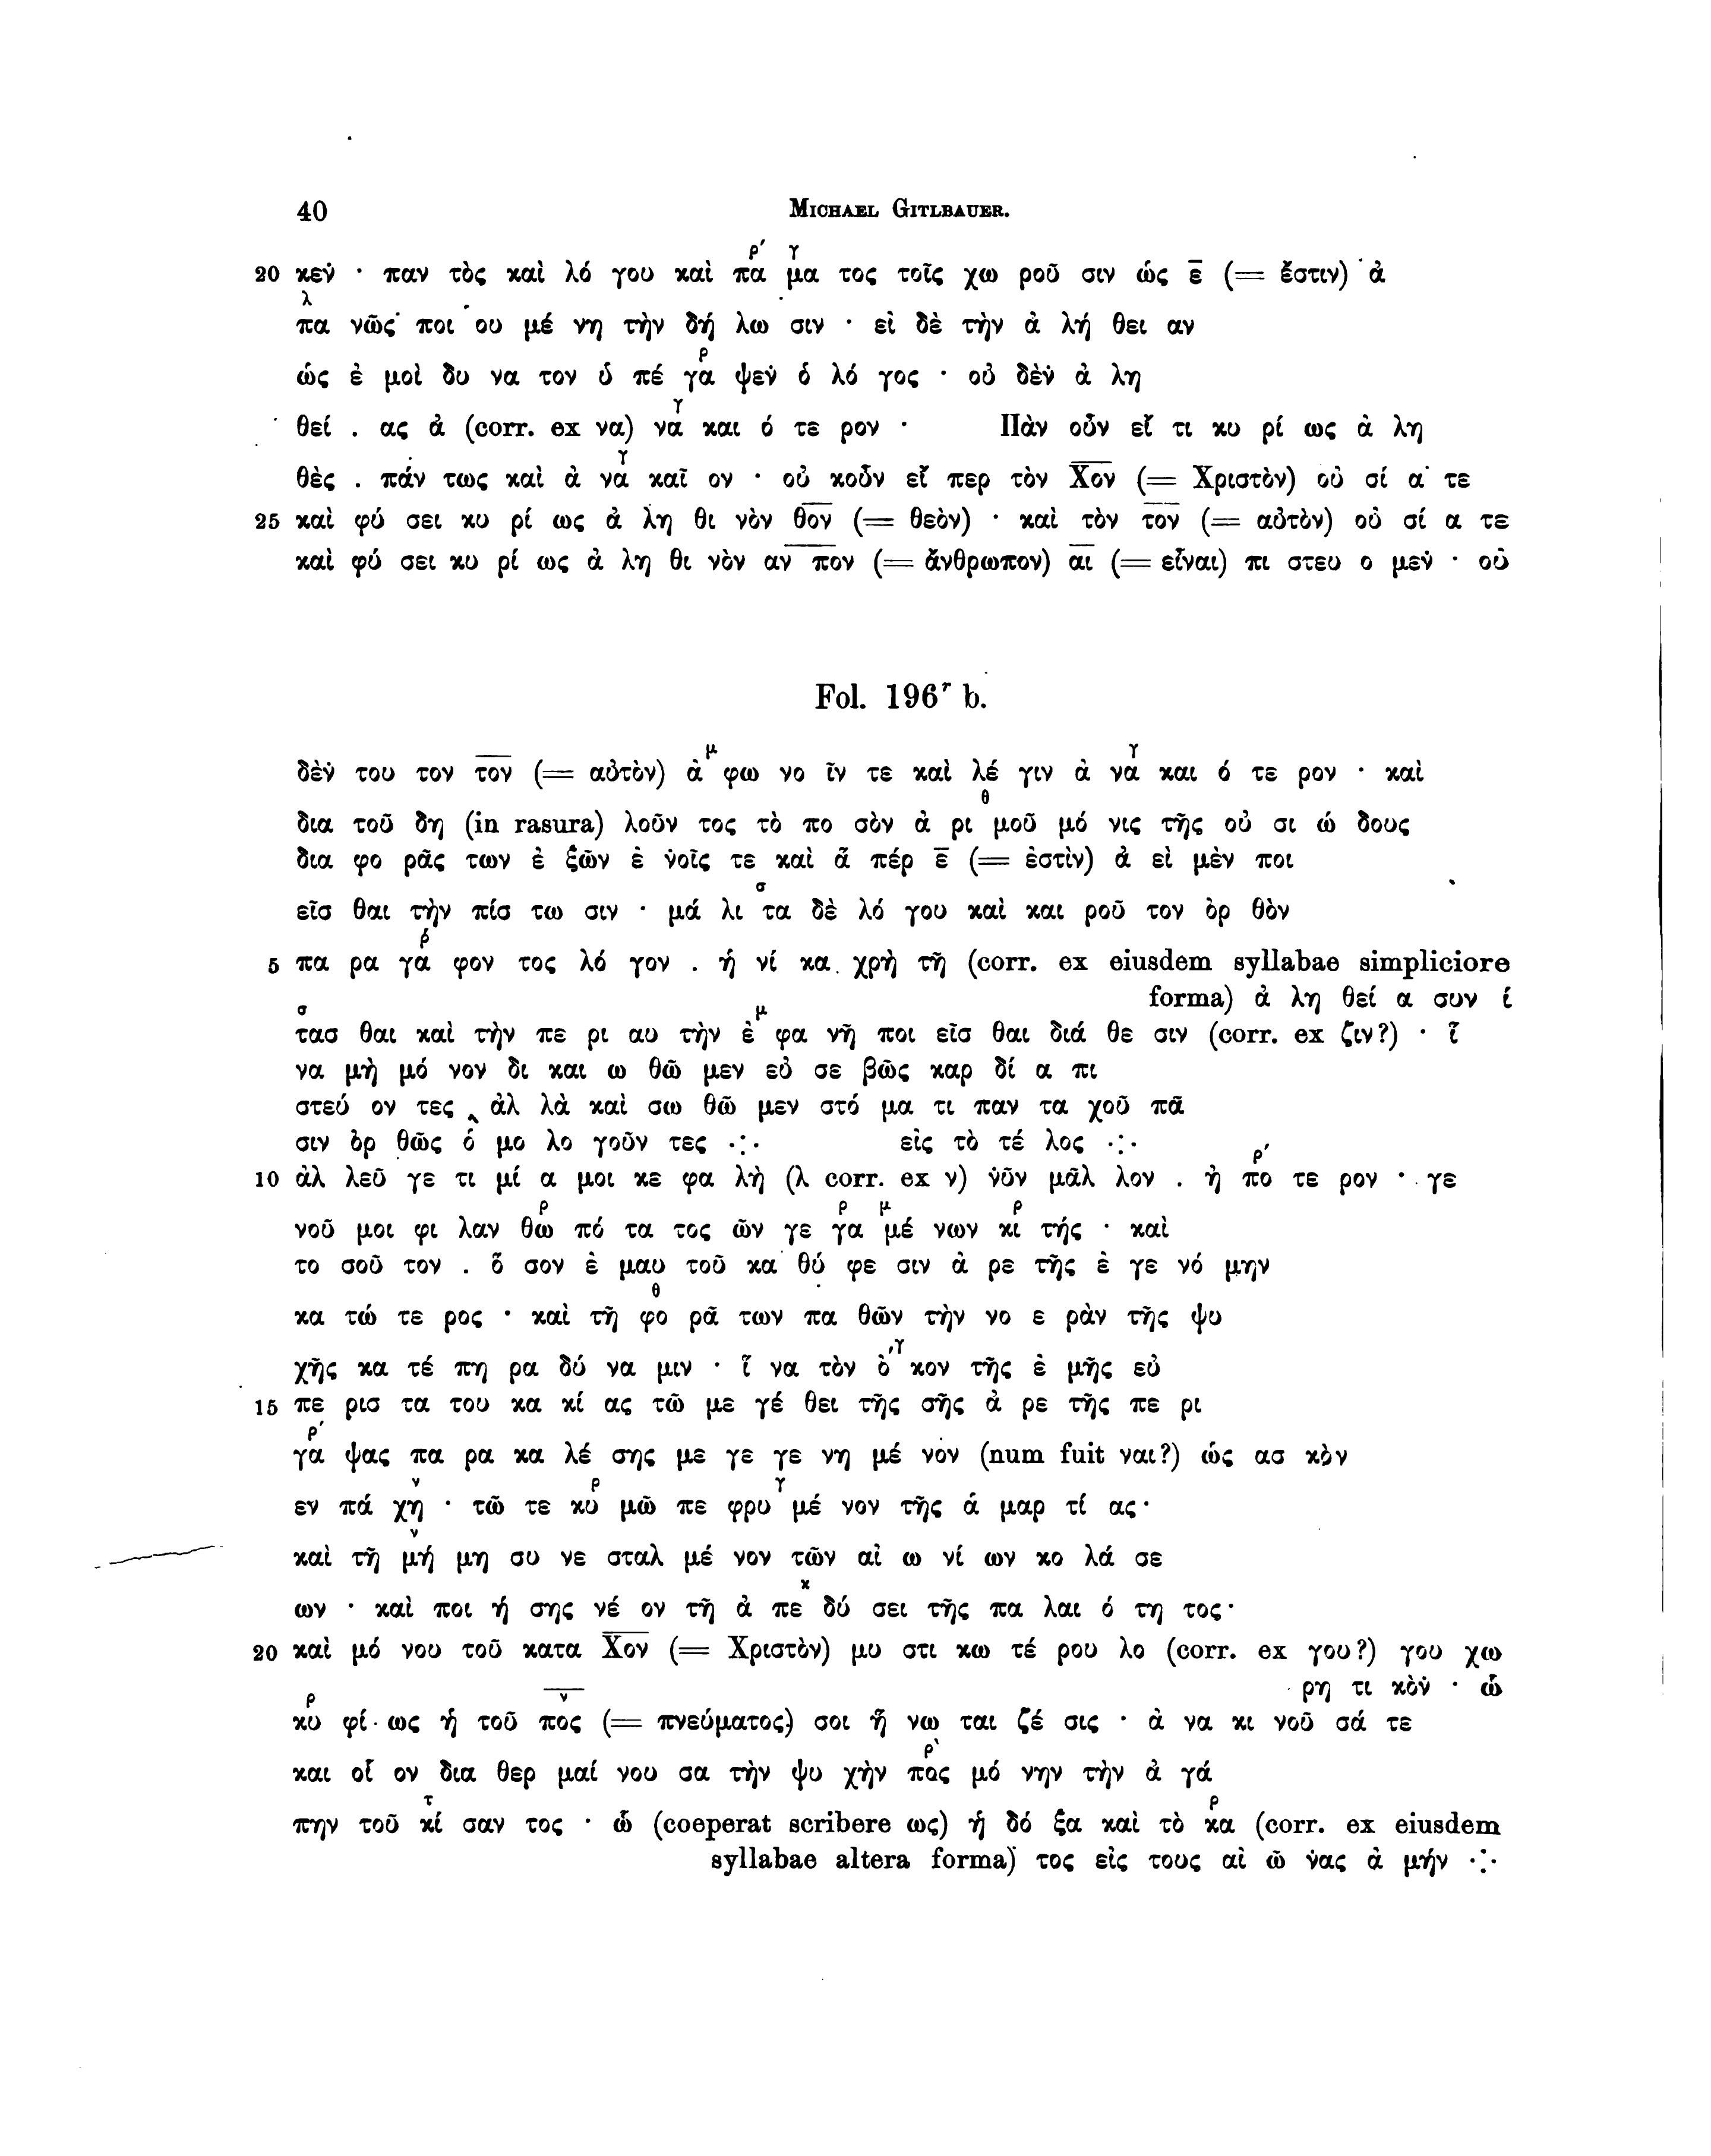 40 MICHAEL GITLBAUER.
ρ´ γ
20 κεν̇ · παν τὸς καὶ λό γου καὶ πα μα τος τοῖς χω ροῦ σιν ὡς ε̄ (= ἔστιν) ἁ
λ
πα νῶς ποι ου μέ νη τὴν δή λω σιν · εἰ δὲ τὴν ἀ λή θει αν
ρ
ὡς ἐ μοὶ δυ να τον ὑ πέ γα ψεν̇ ὁ λό γος · οὐ δὲν̇ ἀ λη
γ
θεί . ας ἀ (corr. ex να) να και ό τε ρον · Πὰν οὖν εἴ τι κυ ρί ως ἀ λη
γ
θὲς . πάν τως καὶ ἀ να καῖ ον · οὐ κοῦν εἴ περ τὸν Χον (= Χριστὸν) οὐ σί α τε
25 καὶ φύ σει κυ ρί ως ἀ λη θι νὸν θον (= θεὸν) · καὶ τὸν τον (= αὐτὸν) οὐ σί α τε
καὶ φύ σει κυ ρί ως ἀ λη θι νὸν αν πον (= ἄνθρωπον) αι (= εἶναι) πι στευ ο μεν̇ · οὐ
Fol. 196r b.
μ γ
δὲν̇ του τον τον (= αὐτὸν) ἀ φω νο ῖν τε καὶ λέ γιν ἀ να και ό τε ρον · καὶ
θ
δια τοῦ δη (in rasura) λοῦν τος τὸ πο σὸν ἀ ρι μοῦ μό νις τῆς οὐ σι ώ δους
δια φο ρᾶς των ἐ ξῶν ἐ ν̇οῖς τε καὶ ἅ πέρ ε̄ (= ἐστὶν) ἀ εὶ μὲν ποι
σ
εῖσ θαι τὴν πίσ τω σιν · μά λι τα δὲ λό γου καὶ και ροῦ τον ὀρ θὸν
ρ
5 πα ρα γα φον τος λό γον . ἡ νί κα χρὴ τῆ (corr. ex eiusdem syllabae simpliciore
forma) ἀ λη θεί α συν ί
σ μ
τασ θαι καὶ τὴν πε ρι αυ τὴν ἐ φα νῆ ποι εῖσ θαι διά θε σιν (corr. ex ζιν?) · ἵ
να μὴ μό νον δι και ω θῶ μεν εὐ σε βῶς καρ δί α πι
στεύ ον τες ‸ ἀλ λὰ καὶ σω θῶ μεν στό μα τι παν τα χοῦ πᾶ
σιν ὀρ θῶς ὁ μο λο γοῦν τες ·:· εἰς τὸ τέ λος ·:·
ρ´
10 ἀλ λεῦ γε τι μί α μοι κε φα λὴ (λ corr. ex ν) ν̇ῦν μᾶλ λον . ἢ πο τε ρον · γε
ρ ρ μ ρ
νοῦ μοι φι λαν θω πό τα τος ῶν γε γα μέ νων κι τής · καὶ
το σοῦ τον . ὅ σον ἐ μαυ τοῦ κα θύ φε σιν ἀ ρε τῆς ἐ γε νό μην
θ
κα τώ τε ρος · καὶ τῆ φο ρᾶ των πα θῶν τὴν νο ε ρὰν τῆς ψυ
´γ
χῆς κα τέ πη ρα δύ να μιν · ἵ να τὸν ὁ κον τῆς ἐ μῆς εὐ
15 πε ρισ τα του κα κί ας τῶ με γέ θει τῆς σῆς ἀ ρε τῆς πε ρι
ρ´
γα ψας πα ρα κα λέ σης με γε γε νη μέ νον (num fuit ναι?) ὡς ασ κὸν
ν ρ γ
εν πά χη · τῶ τε κυ μῶ πε φρυ μέ νον τῆς ἁ μαρ τί ας·
ν
καὶ τῆ μή μη συ νε σταλ μέ νον τῶν αἰ ω νί ων κο λά σε
κ
ων · καὶ ποι ή σης νέ ον τῆ ἀ πε δύ σει τῆς πα λαι ό τη τος·
20 καὶ μό νου τοῦ κατα Χον (= Χριστὸν) μυ στι κω τέ ρου λο (corr. ex γου?) γου χω
ρη τι κὸν̇ · ὧ
ρ ν
κυ φί ως ἡ τοῦ πος (= πνεύματος) σοι ἥ νω ται ζέ σις · ἀ να κι νοῦ σά τε
ρ`
και οἷ ον δια θερ μαί νου σα τὴν ψυ χὴν πος μό νην τὴν ἀ γά
τ ρ
πην τοῦ κί σαν τος · ὧ (coeperat scribere ως) ἡ δό ξα καὶ τὸ κα (corr. ex eiusdem
syllabae altera forma) τος εἰς τους αἰ ῶ ν̇ας ἀ μήν ·:·